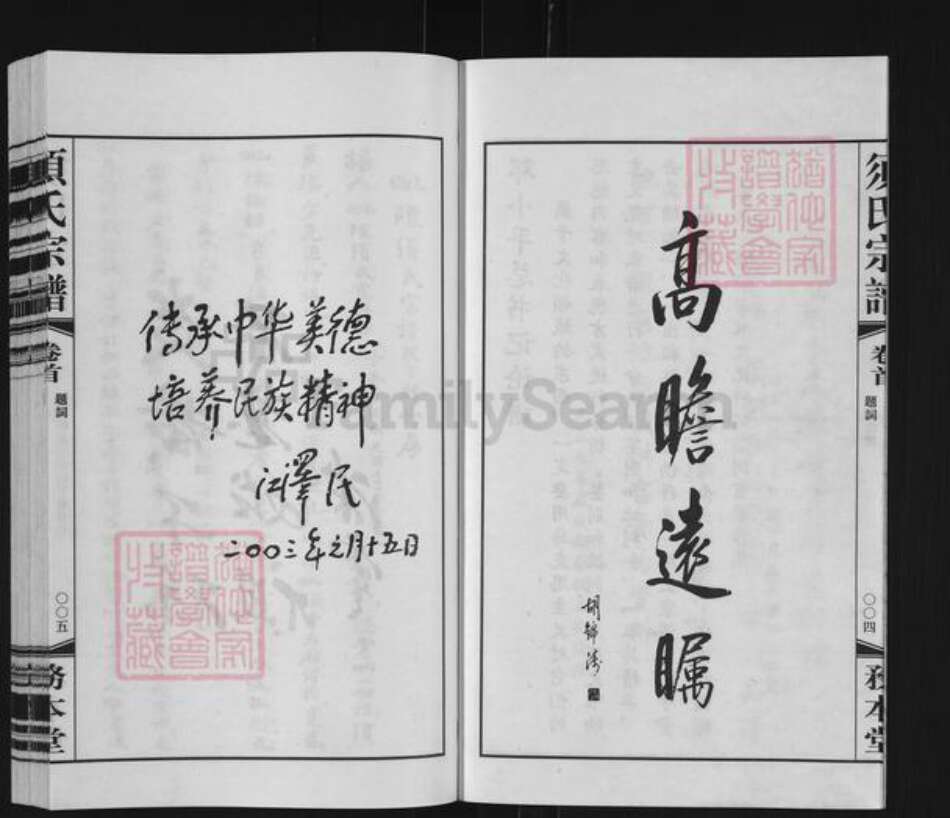 須氏宗譜
卷首
題詞
〇〇四
務本堂
高瞻遠瞩
胡錦濤
傳承中华美德
培养民族精神
江澤民
二〇〇三年元月十五日
須氏宗譜
卷首
題詞
〇〇五
務本堂
譜學會
收藏
譜學會
收藏
FamilySearch